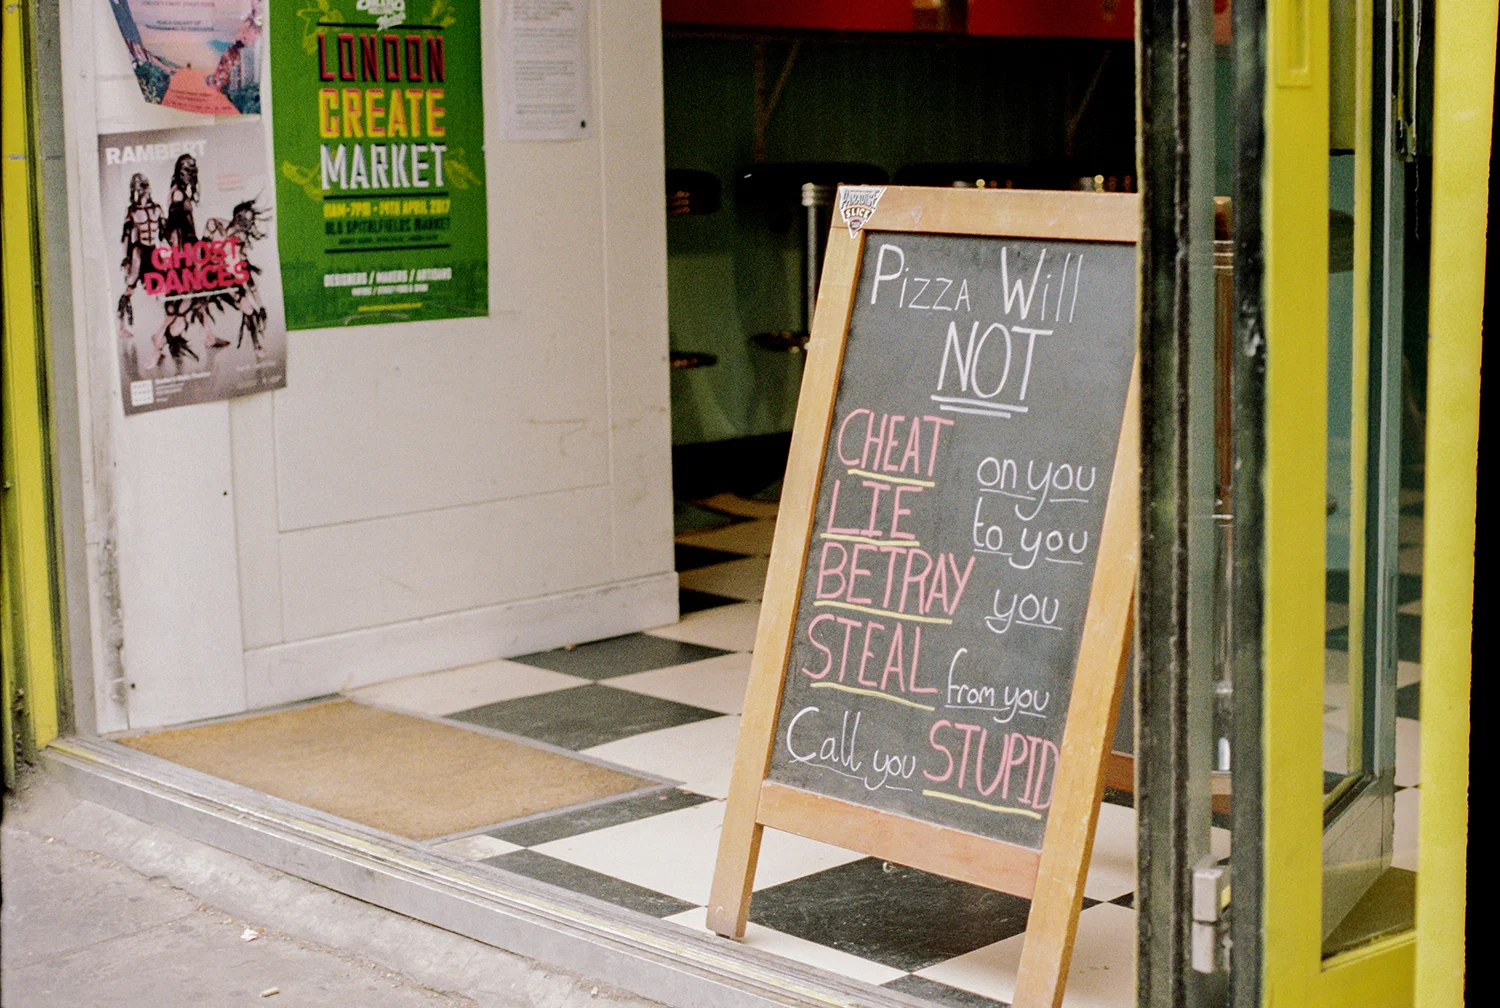 RAMBERT
GHOST
DANCES
LONDON
CREATE
MARKET
11AM-7PM - 29TH APRIL 2017
OLD SPITALFIELDS MARKET
DESIGNERS / MAKERS / ARTISANS
PARADISE
SLICE
Pizza Will
NOT
CHEAT on you
LIE to you
BETRAY you
STEAL from you
Call you STUPID